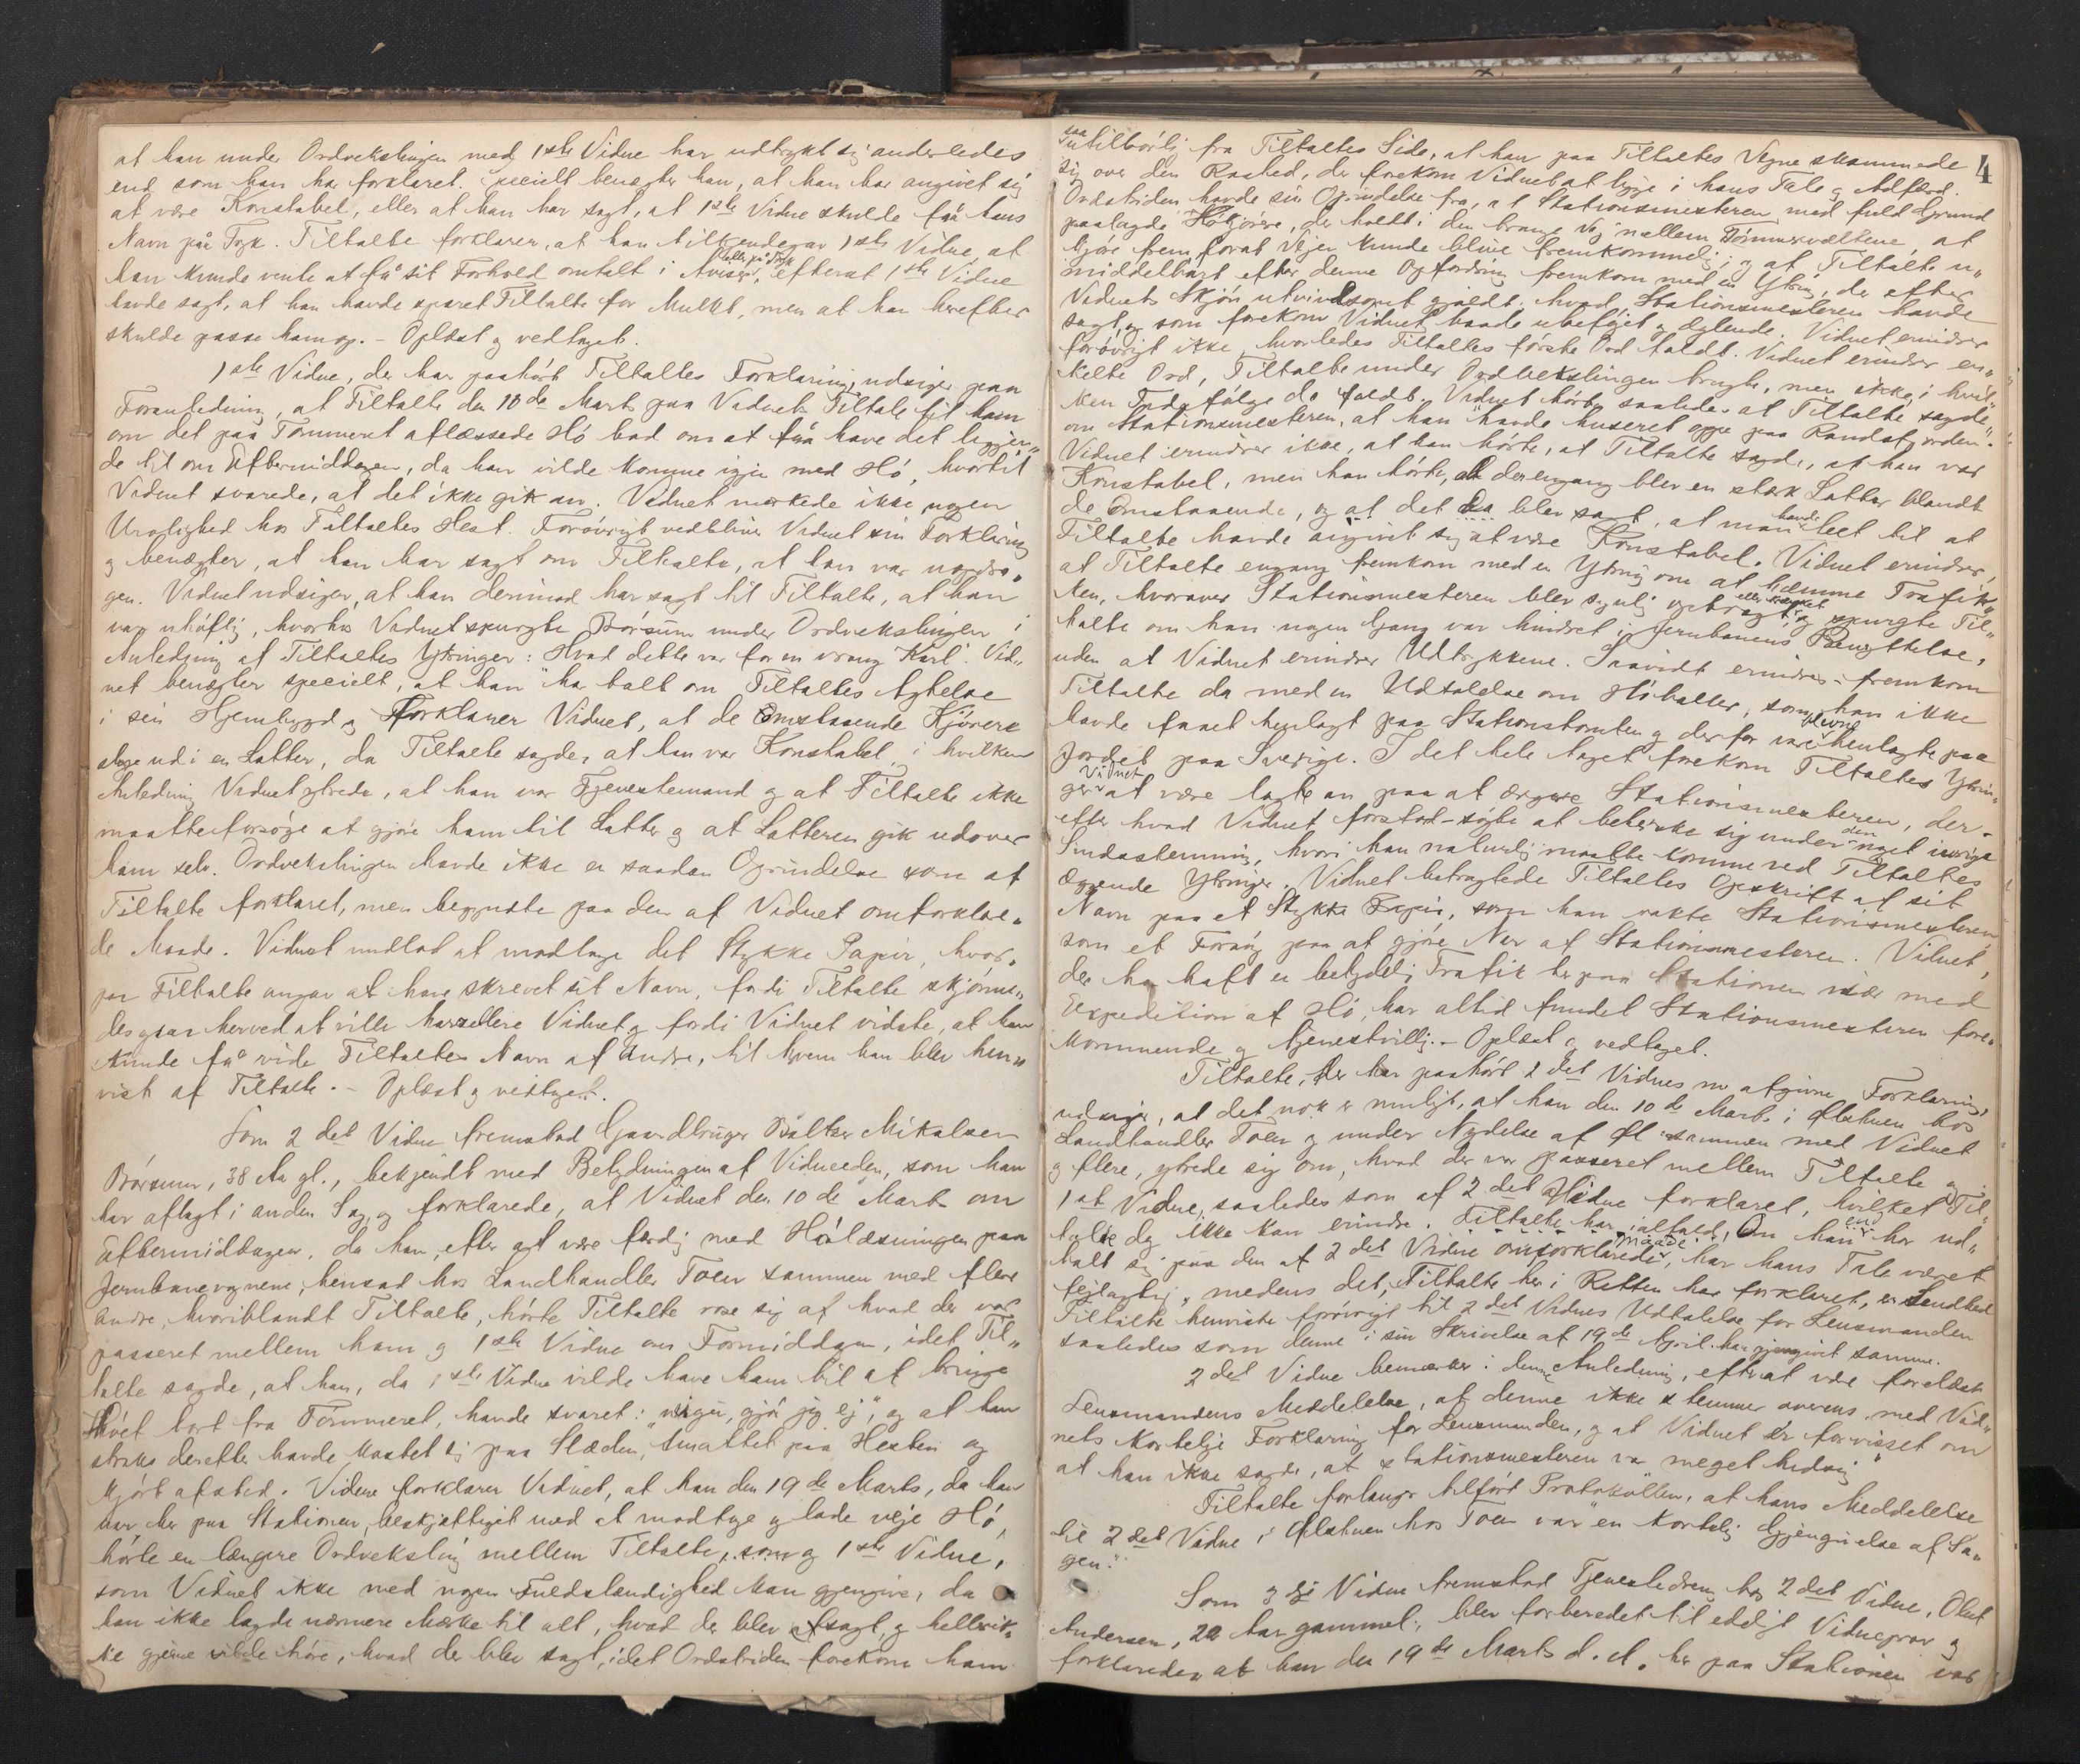 at han under Ordvekslingen med 1ste Vidne har udtrykt sig anderledes
end som han har forklaret. Specielt benægter han, at han har angivet sig
at være Konstabel, eller at han har sagt, at 1ste Vidne skulde faa hans
Navn på Tryk. Tiltalte forklarer, at han tilkjendegav 1ste Vidne, at
eller på Tryk
han kunde vente at få sit Forhold omtalt i Aviser, efterat 1ste Vidne
havde sagt, at han havde sparet Tiltalte for Mulkt, men at han herefter
skulde passe ham op. - Oplæst og vedtaget.
1ste Vidne, der har paahørt Tiltaltes Forklaring, udsiger paa
Foranledning, at Tiltalte den 10de Marts paa Vidnets Tiltale til ham
om det paa Tømmeret aflæssede Hö bad om at få have det liggen„
de til om Eftermiddagen, da han vilde komme igjen med Hö, hvortil
Vidnet svarede, at det ikke gik an. Vidnet mærkede ikke nogen
Urolighed hos Tiltaltes Hest. Forövrigt vedbliver Vidnet sin Forklaring
og benægter, at han har sagt om Tiltalte, at han var uopdra„
gen. Vidnet udsiger, at han derimod har sagt til Tiltalte, at han
var uhöflig, hvorhos Vidnet spurgte Börsum under Ordvekslingen i
Anledning af Tiltaltes Ytringer: "Hvad dette var for en vrang Karl". Vid„
net benægter specielt, at han har talt om Tiltaltes Agtelse
i sin Hjembygd og forklarer Vidnet, at de omstaaende Kjörere
sloge ud i en Latter, da Tiltalte sagde, at han var Konstabel, i hvilken
Anledning Vidnet ytrede, at han var Tjenestemand og at Tiltalte ikke
maatte forsöge at gjöre ham til Latter og at Latteren gik udover
ham selv. Ordvekslingen havde ikke en saadan Oprindelse som af
Tiltalte forklaret, men begyndte paa den af Vidnet omforklare„
de Maade. Vidnet undlod at modtage det Stykke Papir, hvor„
paa Tiltalte angav at have skrevet sit Navn, fordi Tiltalte skjönne„
ligvis herved at ville harcellere Vidnet og fordi Vidnet vidste, at han
kunde få vide Tiltaltes Navn af Andre, til hvem han blev hen„
vist af Tiltalte. - Oplæst og vedtaget.
Som 2det Vidne fremstod Gaardbruger Balter Mikalsen
Börsum, 38 Aar gl., bekjendt med Betydningen af Vidneeden, som han
har aflagt i anden Sag, og forklarede, at Vidnet den 10de Marts om
Eftermiddagen, da han, efter at være færdig med Hölæsningen paa
Jernbanevognene, hensad hos Landhandler Toen sammen med flere
andre, hvoriblandt Tiltalte, hörte Tiltalte rose sig af hvad der var
passeret mellem ham og 1ste Vidne om Formiddagen, idet Til„
talte sagde, at han, da 1ste Vidne vilde have ham til at bringe
Höet bort fra Tømmeret, havde svaret: "nigu, gjör jeg ej", og at han
straks derefter havde kastet sig paa Slæden, smattet paa Hesten og
kjört afsted. Videre forklarer Vidnet, at han den 19de Marts, da han
var her paa Stationen, beskjæftiget med at modtage og lade veje Hö,
hörte en længere Ordveksling mellem Tiltalte, som og 1ste Vidne,
som Vidnet ikke med nogen Fuldstændighed kan gjengive, da
han ikke lagde nærmere Mærke til alt, hvad der blev sagt, og heller ik„
ke gjerne vilde höre, hvad der blev sagt, idet Ordstriden forekom ham
4
saa
utilbörlig fra Tiltaltes Side, at han paa Tiltaltes Vegne skammede
sig over den Raahed, der forekom Vidnet at ligge i hans Tale og Adfærd.
Ordstriden havde sin Oprindelse fra, at Stationsmesteren med fuld Grund
paalagde Hökjörere, der holdt i den trange Vej mellem Tömmervæltene, at
kjöre frem, forat Vejen kunde blive fremkommelig; og at Tiltalte u„
middelbart efter denne Opfordring fremkom med en Ytring, der efter
Vidnets Skjön utvivlsomt gjældt, hvad Stationsmesteren havde
sagt, og som forekom Vidnet baade ubeföjet og æglende. Vidnet erindrer
forövrigt ikke, hvorledes Tiltaltes förste Ord faldt. Vidnet erindrer en„
kelte Ord, Tiltalte under Ordvekslingen brugte, men ikke i hvil„
ken Endefölge de faldt. Vidnet hörte saaledes at Tiltalte sagde
om Stationsmesteren, at han "havde huseret oppe paa Randsfjorden".
Vidnet erindrer ikke, at han hörte, at Tiltalte sagde, at han var
Konstabel, men han hörte, at der engang blev en stærk Latter blandt
de Omstaaende, og at det da blev sagt, at man havde leet til at
Tiltalte havde angivet sig at være Konstabel. Vidnet erindrer,
at Tiltalte engang fremkom med en Ytring om at hemme Trafik„
ken, hvorover Stationsmesteren blev synlig opbragt, og spurgte Til„
talte om han nogen Gang var hindret i Jernbanens Benyttelse,
uden at Vidnet erindrer Udtrykkene. Saavidt erindres fremkom
Tiltalte da med en Udtalelse om Höballer, som han ikke
havde faaet henlagt paa Stationstomten og derfor vare blevne henlagte paa
Jordet paa Sverige. I det hele taget forekom Tiltaltes Ytrin„
ger Vidnet at være lagte an paa at ærgre Stationsmesteren, der -
efter hvad Vidnet forstod - sögte at beherske sig under den noget ivrige
Sindsstemning, hvori han naturlig maatte komme ved Tiltaltes
æggende Ytringer. Vidnet betragtede Tiltaltes Opskrift af sit
Navn paa et Stykke Papir, som han rakte Stationsmesteren
som et Forsög paa at gjöre Nar af Stationsmesteren. Vidnet,
der har haft en betydelig Trafik her paa Stationen især med
Expedition af Hö, har altid fundet Stationsmesteren fore„
kommende og tjenestvillig. - Oplæst og vedtaget.
Tiltalte, der har paahört 2det Vidnes nu afgivne Forklaring,
udsiger, at det nok er muligt, at han den 10de Marts i Ölstuen hos
Landhandler Toen og under Nydelse af Öl sammen med Vidnet
og flere, ytrede sig om, hvad der var passeret mellem Tiltalte og
1ste Vidne, saaledes som af 2det Vidne forklaret, hvilket Til„
talte dog ikke kan erindre. Tiltalte har ialfald, Om han end har ud„
talt sig paa den af 2det Vidne omforklarede Maade, har hans Tale været
fejlagtig, medens det, Tiltalte her i Retten har forklaret, er Sandhed.
Tiltalte henviste forövrigt til 2det Vidnes Udtalelse for Lensmanden
saaledes som denne i sin Skrivelse af 19de April har gjengivet samme.
2det Vidne bemærker i denne Anledning, efterat være forelæst
Lensmandens Meddelelse, at denne ikke stemmer overens med Vid„
nets kortelige Forklaring for Lensmanden, og at Vidnet er forvisset om
at han ikke sagde, at Stationsmesteren var meget hidsig"
Tiltalte forlanger tilfört Protokollen, at hans Meddelelse
til 2det Vidne i Ölstuen hos Toen var "en kortelig Gjengivelse af Sa„
gen."
Som 3dje Vidne fremstod Tjenestedreng hos 2det Vidne, Oluf
Andersen, 22 Aar gammel, blev forberedet til edeligt Vidneprov og
forklarede, at han den 19de Marts d. A. her paa Stationen var